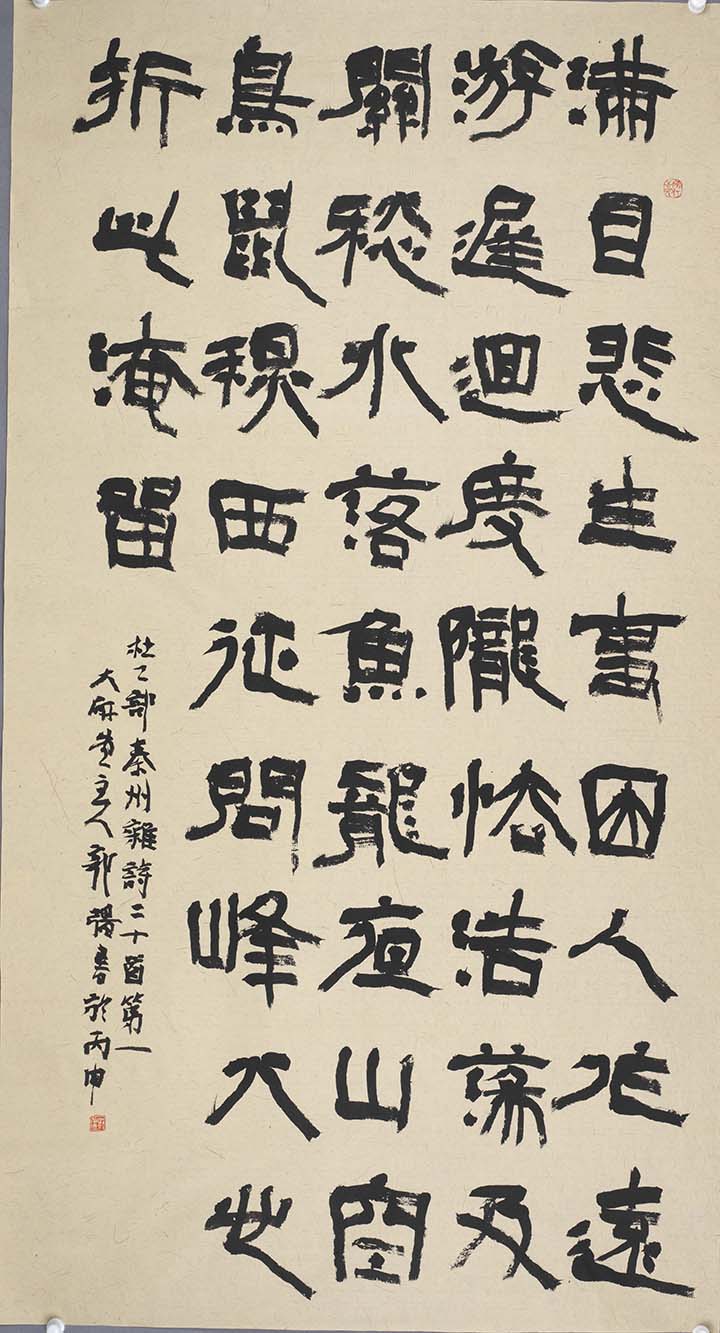 滿目悲生事因人作遠
游遲迴度隴怯浩蕩及
關愁水落魚龍夜山空
鳥鼠秋西征問峰火心
折此淹留
杜工部秦州雜詩二十首第一
主人郭強書於丙申